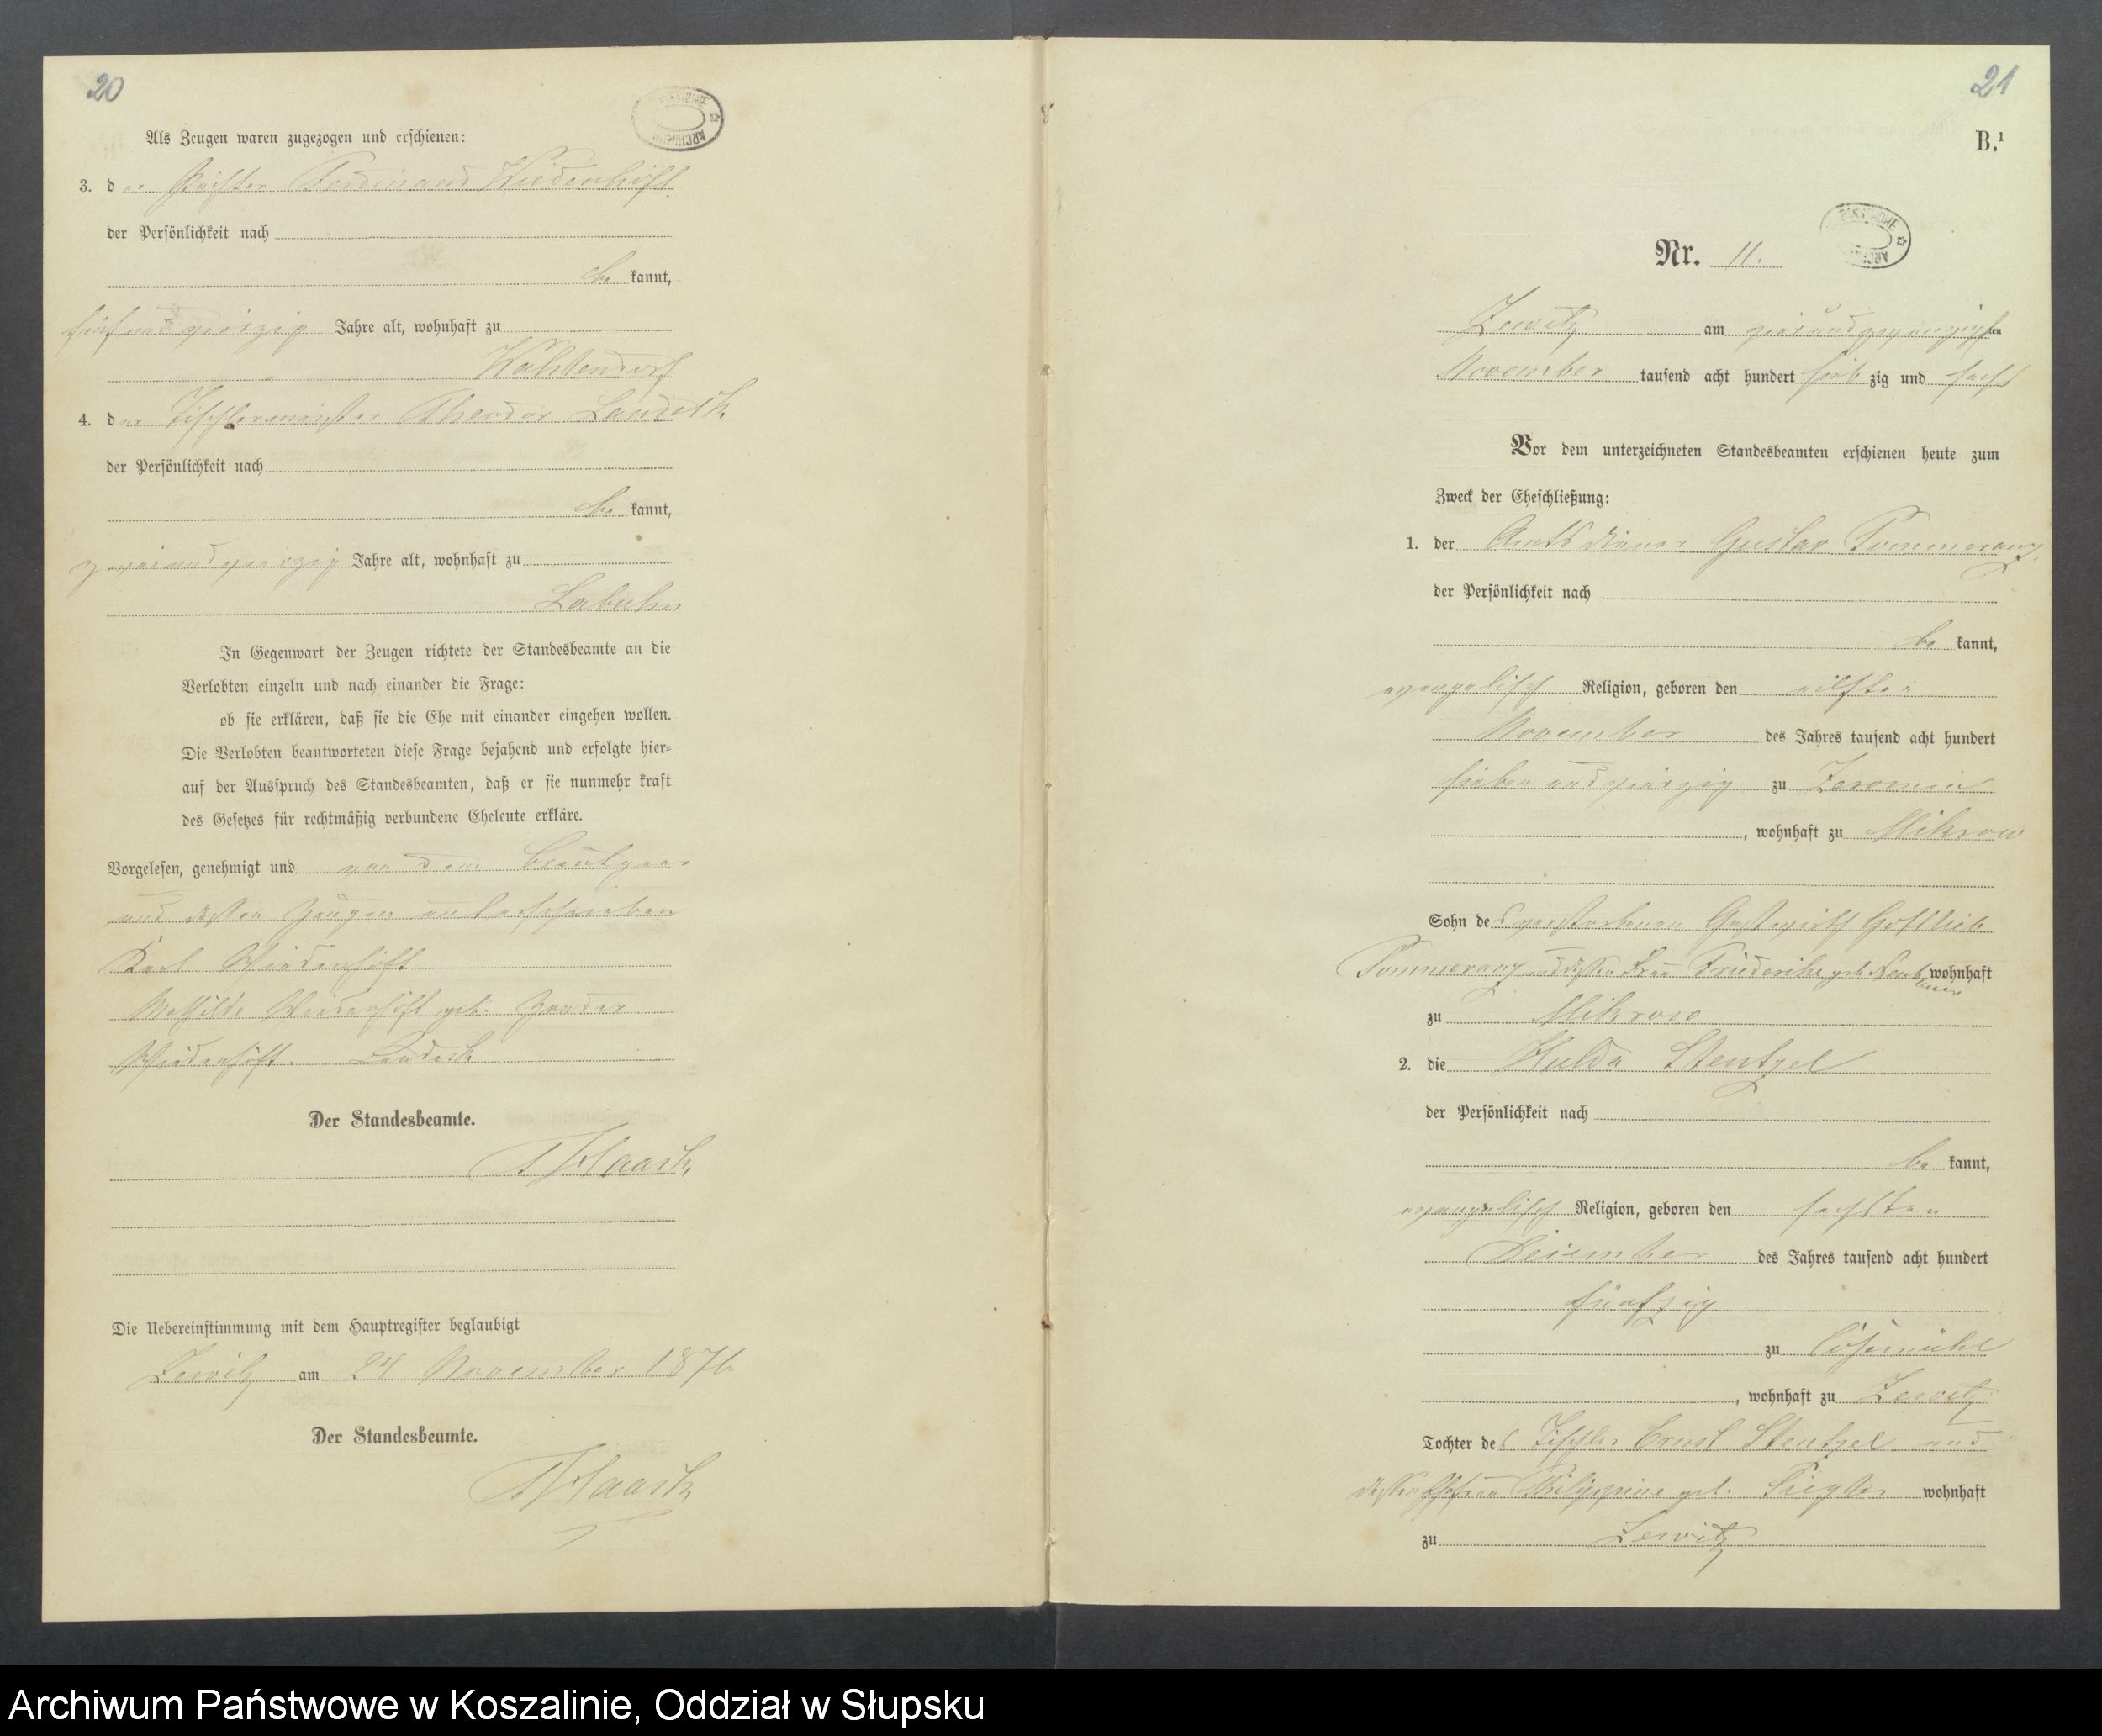 20
Als Zeugen waren zugezogen und erschienen:
3. der Ferdinand Wiedenhöft
der Persönlichkeit nach
be kannt,
fünfundvierzig Jahre alt, wohnhaft zu
Wahlendorf
4. der Tischlermeister Theodor Landeck
der Persönlichkeit nach
be kannt,
zweiundvierzig Jahre alt, wohnhaft zu
Labuhn
In Gegenwart der Zeugen richtete der Standesbeamte an die
Verlobten einzeln und nach einander die Frage:
ob sie erklären, daß sie die Ehe mit einander eingehen wollen.
Die Verlobten beantworteten diese Frage bejahend und erfolgte hier-
auf der Ausspruch des Standesbeamten, daß er sie nunmehr kraft
des Gesetzes für rechtmäßig verbundene Eheleute erkläre.
Vorgelesen, genehmigt und von dem
und Zeugen unterschrieben
Karl Wiedenhöft
Mathilde Wiedenhöft geb.
Wiedenhöft. Landeck
Der Standesbeamte.
Haack
Die Uebereinstimmung mit dem Hauptregister beglaubigt
Zewitz am 24 November 1876
Der Standesbeamte.
Haack
21
B.¹
Nr. 11.
Zewitz am vierundzwanzigsten
November tausend acht hundert sieb zig und sechs
Vor dem unterzeichneten Standesbeamten erschienen heute zum
Zweck der Eheschließung:
1. der Amtsdiener Gustav Pommeranz
der Persönlichkeit nach
be kannt,
evangelisch Religion, geboren den elften
November des Jahres tausend acht hundert
sieben und vierzig zu Zeromin
, wohnhaft zu Mikrow
Sohn des verstorbenen Gastwirth Gottlieb
Pommeranz und dessen Frau Friederike geb. wohnhaft
zu Mikrow
2. die Hulda Stentzel
der Persönlichkeit nach
be kannt,
evangelisch Religion, geboren den sechsten
Dezember des Jahres tausend acht hundert
fünfzig
zu
, wohnhaft zu Zewitz
Tochter des Tischler Ernst Stentzel und
dessen Ehefrau Philippine geb. wohnhaft
zu Zewitz
Archiwum Państwowe w Koszalinie, Oddział w Słupsku